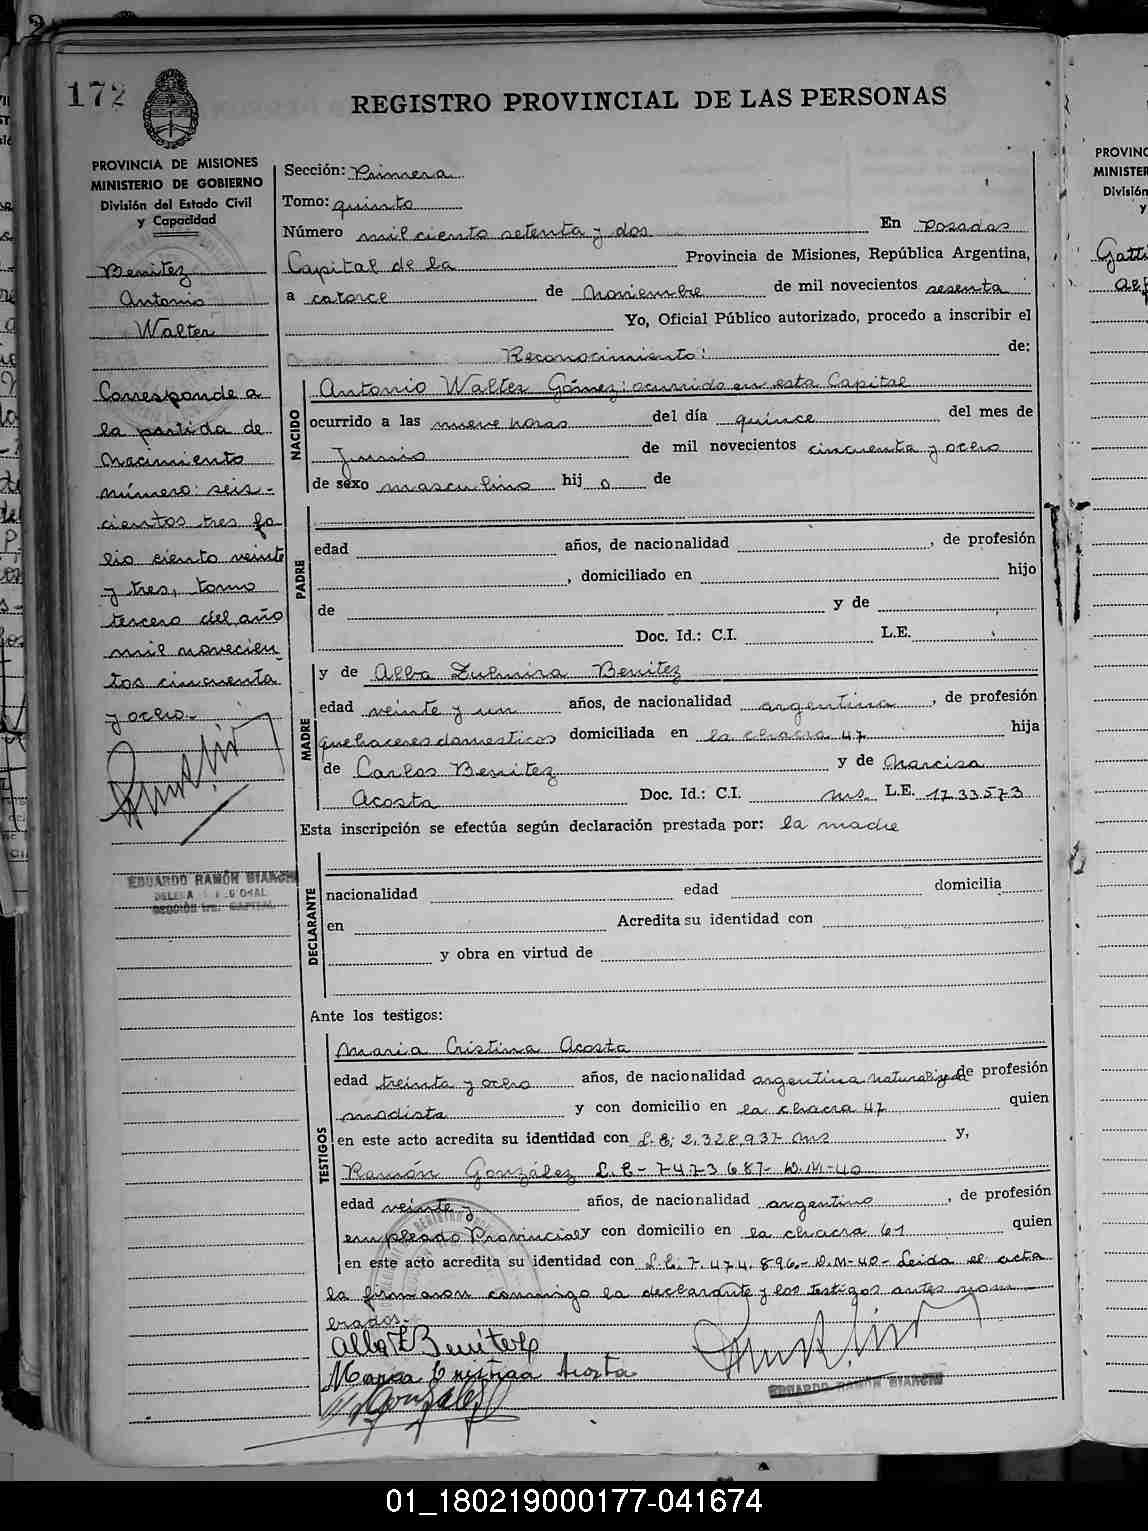 172
REGISTRO PROVINCIAL DE LAS PERSONAS
PROVINCIA DE MISIONES
MINISTERIO DE GOBIERNO
División del Estado Civil
y Capacidad
Benitez
Antonio
Walter
Corresponde a
la partida de
nacimiento
número: seis-
cientos tres fo
lio ciento veinte
y tres, tomo
tercero del año
mil novecien
tos cincuenta
y ocho.
EDUARDO RAMÓN BIANCHI
SECCIÓN 1ra. CAPITAL
Sección: Primera
Tomo: quinto
Número mil ciento setenta y dos En Posadas
Capital de la Provincia de Misiones, República Argentina,
a catorce de Noviembre de mil novecientos sesenta
Yo, Oficial Público autorizado, procedo a inscribir el
Reconocimiento: de:
NACIDO
Antonio Walter Gómez: ocurrido en esta Capital
ocurrido a las nueve horas del día quince del mes de
Junio de mil novecientos cincuenta y ocho
de sexo masculino hij o de
PADRE
edad años, de nacionalidad , de profesión
, domiciliado en hijo
de y de
Doc. Id.: C.I. L.E.
MADRE
y de Alba Zulmira Benitez
edad veinte y un años, de nacionalidad argentina , de profesión
quehaceres domesticos domiciliada en la chacra 47 hija
de Carlos Benitez y de Narcisa
Acosta Doc. Id.: C.I. ms. L.E. 1733573
Esta inscripción se efectúa según declaración prestada por: la madre
DECLARANTE
nacionalidad edad domicilia
en Acredita su identidad con
y obra en virtud de
Ante los testigos:
TESTIGOS
Maria Cristina Acosta
edad treinta y ocho años, de nacionalidad argentina naturalizada de profesión
modista y con domicilio en la chacra 47 quien
en este acto acredita su identidad con L.E; 2.328.937 ms y,
Ramón González L.E- 7473687- D.M-40
edad veinte y años, de nacionalidad argentino , de profesión
empleado Provincial y con domicilio en la chacra 61 quien
en este acto acredita su identidad con L.E. 7.474.896.- D.M-40- Leida el acta
la firmaron conmigo la declarante y los testigos antes nom
brados.-
Alba Z Benitez
Maria Cristina Acosta
González
EDUARDO RAMÓN BIANCHI
PROVINC
MINISTER
División
y
Gatti
01_180219000177-041674